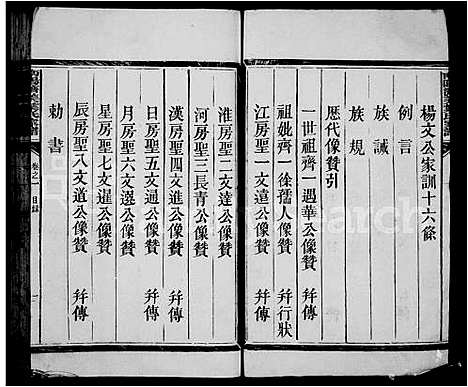 楊文公家訓十六條
例言
族誡
族規
歴代像贊引
一世祖齊一遇華公像贊 并傳
祖妣齊一徐孺人像贊 并行狀
江房聖一文遣公像贊 并傳
淮房聖二文達公像贊
河房聖三長青公像贊
漢房聖四文進公像贊 并傳
日房聖五文通公像贊 并傳
月房聖六文邊公像贊
星房聖七文暹公像贊
辰房聖八文道公像贊 并傳
勅書
卷之一 目録